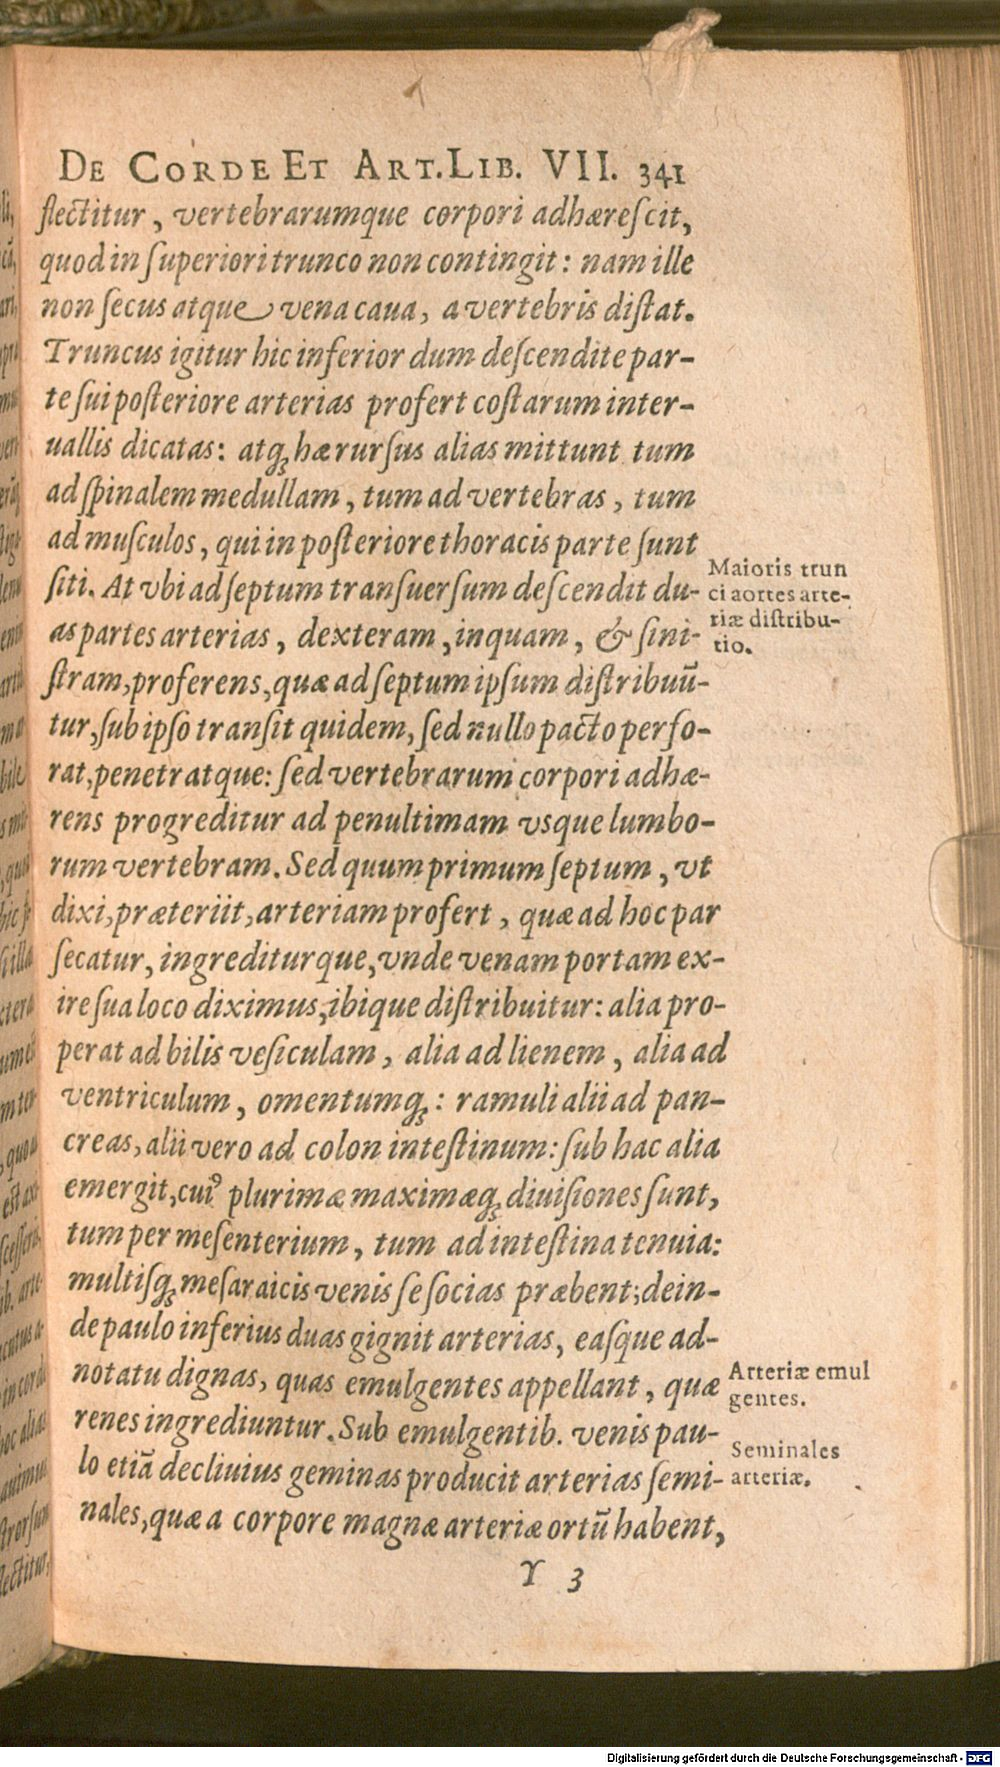 DE CORDE ET ART. LIB. VII. 341
flectitur, vertebrarumque corpori adhærescit,
quod in superiori trunco non contingit: nam ille
non secus atque vena caua, a vertebris distat.
Truncus igitur hic inferior dum descendit e par-
te sui posteriore arterias profert costarum inter-
uallis dicatas: atq; hæ rursus alias mittunt tum
ad spinalem medullam, tum ad vertebras, tum
ad musculos, qui in posteriore thoracis parte sunt
siti. At vbi ad septum transuersum descendit du-
as partes arterias, dexteram, inquam, & sini-
stram, proferens, quæ ad septum ipsum distribuũ-
tur, sub ipso transit quidem, sed nullo pacto perfo-
rat, penetratque: sed vertebrarum corpori adhæ-
rens progreditur ad penultimam vsque lumbo-
rum vertebram. Sed quum primum septum, vt
dixi, præteriit, arteriam profert, quæ ad hoc par
secatur, ingrediturque, vnde venam portam ex-
ire sua loco diximus, ibique distribuitur: alia pro-
perat ad bilis vesiculam, alia ad lienem, alia ad
ventriculum, omentumq;: ramuli alii ad pan-
creas, alii vero ad colon intestinum: sub hac alia
emergit, cui⁹ plurimæ maximæq; diuisiones sunt,
tum per mesenterium, tum ad intestina tenuia:
multisq; mesaraicis venis se socias præbent; dein-
de paulo inferius duas gignit arterias, easque ad-
notatu dignas, quas emulgentes appellant, quæ
renes ingrediuntur. Sub emulgentib. venis pau-
lo etiã decliuius geminas producit arterias semi-
nales, quæ a corpore magnæ arteriæ ortũ habent,
Y 3
Maioris trun
ci aortes arte-
riæ distribu-
tio.
Arteriæ emul
gentes.
Seminales
arteriæ.
Digitalisierung gefördert durch die Deutsche Forschungsgemeinschaft - DFG